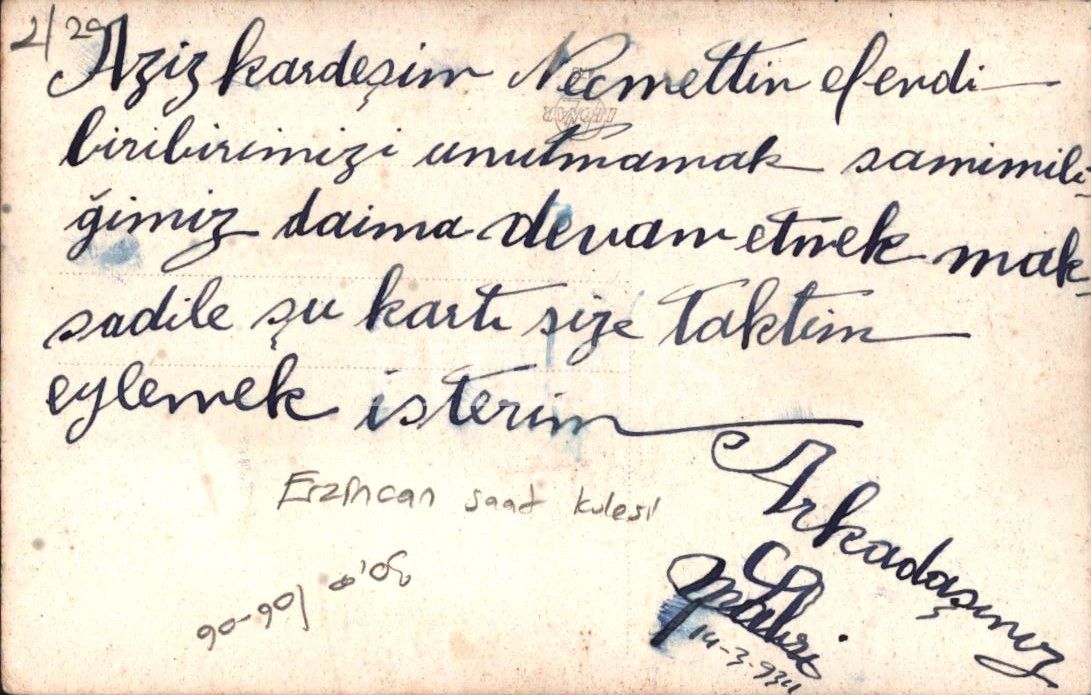 2/29
Aziz kardeşim Necmettin efendi
biribirimizi unutmamak samimili-
ğimiz daima devam etmek mak-
sadile şu kartı size taktim
eylemek isterim
Arkadaşınız
14-3-934
Erzincan saat kulesi